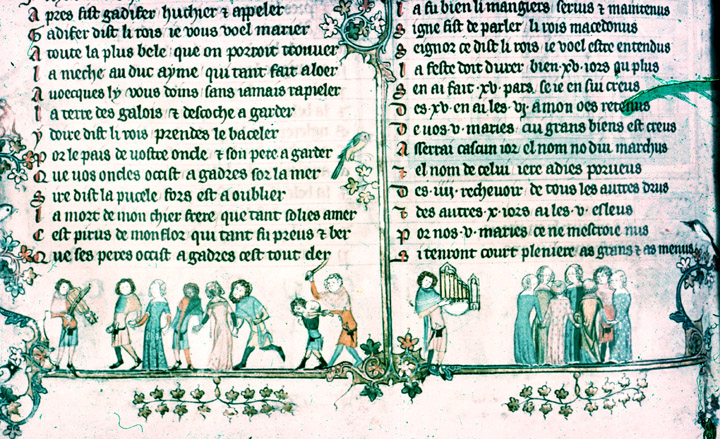 A pres fist gadifer huchier & appeler
G adifer dist li rois ie vous voel marier
A toute la plus bele que on porroit trouuer
L a meche au duc ayme qui tant fait a loer
A uoecques ly vous doins sans iamais rapeler
L a terre des galois & descoche a garder
y doire dist li rois prendes le baceler
P or le pais de vostre oncle & son pere a garder
Q ue vos oncles occist a gadres sor la mer
S ire dist la pucele fors est a oublier
L a mort de mon chier frere que tant solies amer
C est pirus de monflor qui tant fu preus & ber
Q ue ses peres occist a gadres cest tout cler
L a fu bien li mangiers serius & maintenus
S igne fist de parler li rois macedonus
S eignor ce dist li rois ie voel estre entendus
L a feste doit durer bien xv iors ou plus
S en ai fait xv pars se ie en sui creus
D es xv en ai les vj a mon oes retenus
D e uos v maries cui grans biens est creus
A sserrai cascun ior el nom no diu marchus
& el nom de celui iere adies porueus
D es iiij rechevoir de tous les autres drus
& des autres x iors ai les v esleus
P or nos v maries ce ne mescroie nus
S i tenront court pleniere as grans & as menus